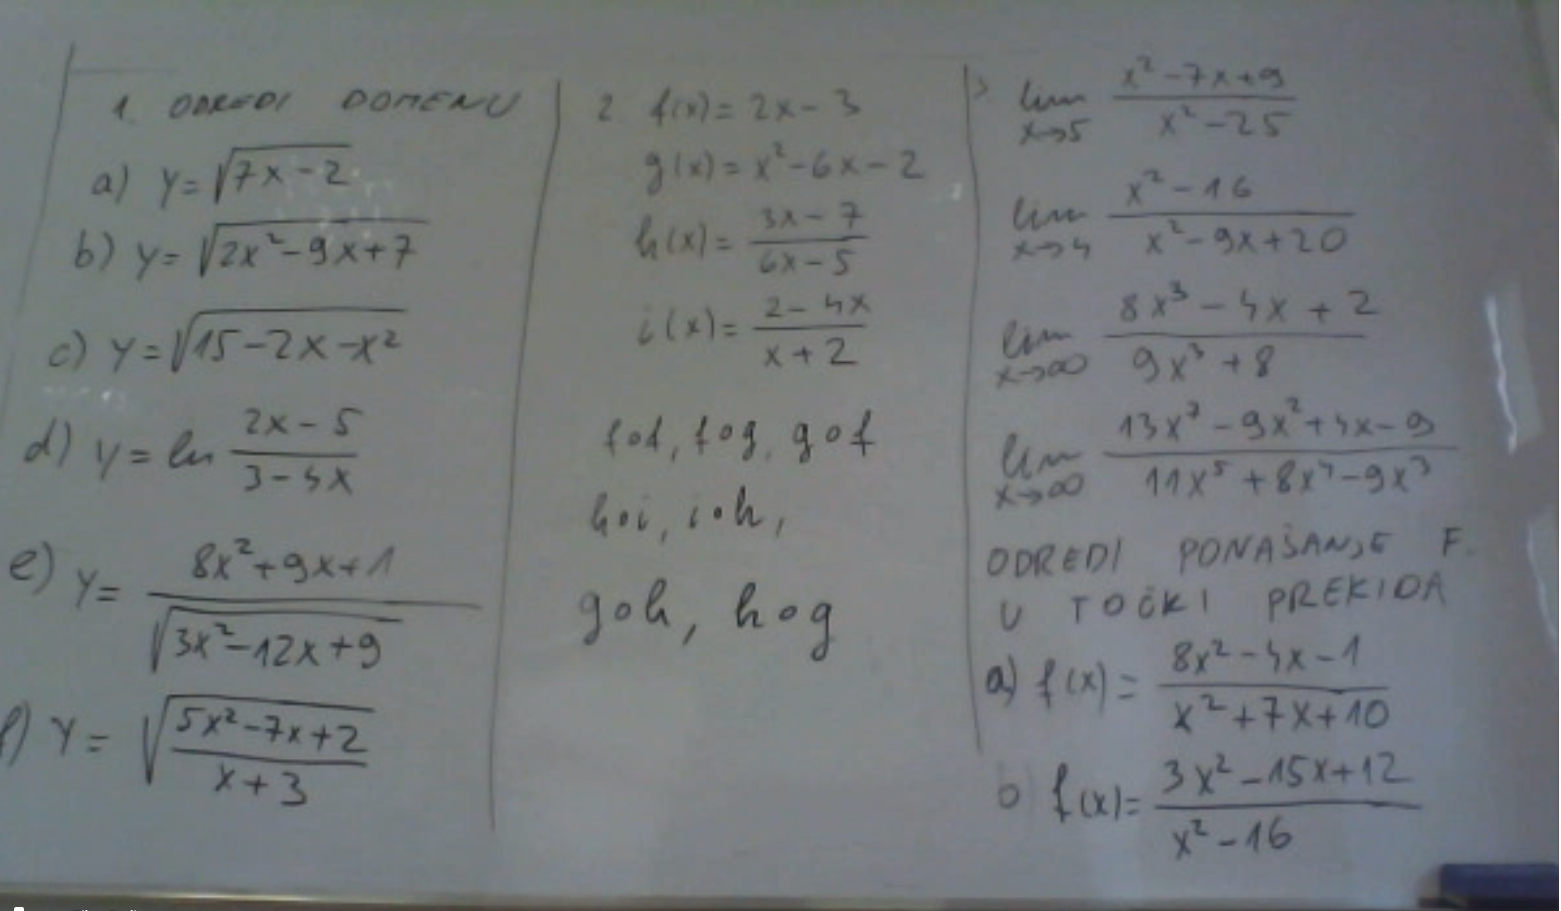 1. ODREDI DOMENU
a) y = √(7x - 2)
b) y = √(2x² - 9x + 7)
c) y = √(15 - 2x - x²)
d) y = ln (2x - 5)/(3 - 4x)
e) y = (8x² + 9x + 1)/√(3x² - 12x + 9)
f) y = √((5x² - 7x + 2)/(x + 3))
2 f(x) = 2x - 3
g(x) = x² - 6x - 2
h(x) = (3x - 7)/(6x - 5)
i(x) = (2 - 4x)/(x + 2)
f∘f, f∘g, g∘f
h∘i, i∘h,
g∘h, h∘g
3 lim x→5 (x² - 7x + 9)/(x² - 25)
lim x→4 (x² - 16)/(x² - 9x + 20)
lim x→∞ (8x³ - 4x + 2)/(9x³ + 8)
lim x→∞ (13x⁷ - 9x² + 4x - 9)/(11x⁵ + 8x⁴ - 9x³)
ODREDI PONAŠANJE F.
U TOČKI PREKIDA
a) f(x) = (8x² - 4x - 1)/(x² + 7x + 10)
b f(x) = (3x² - 15x + 12)/(x² - 16)